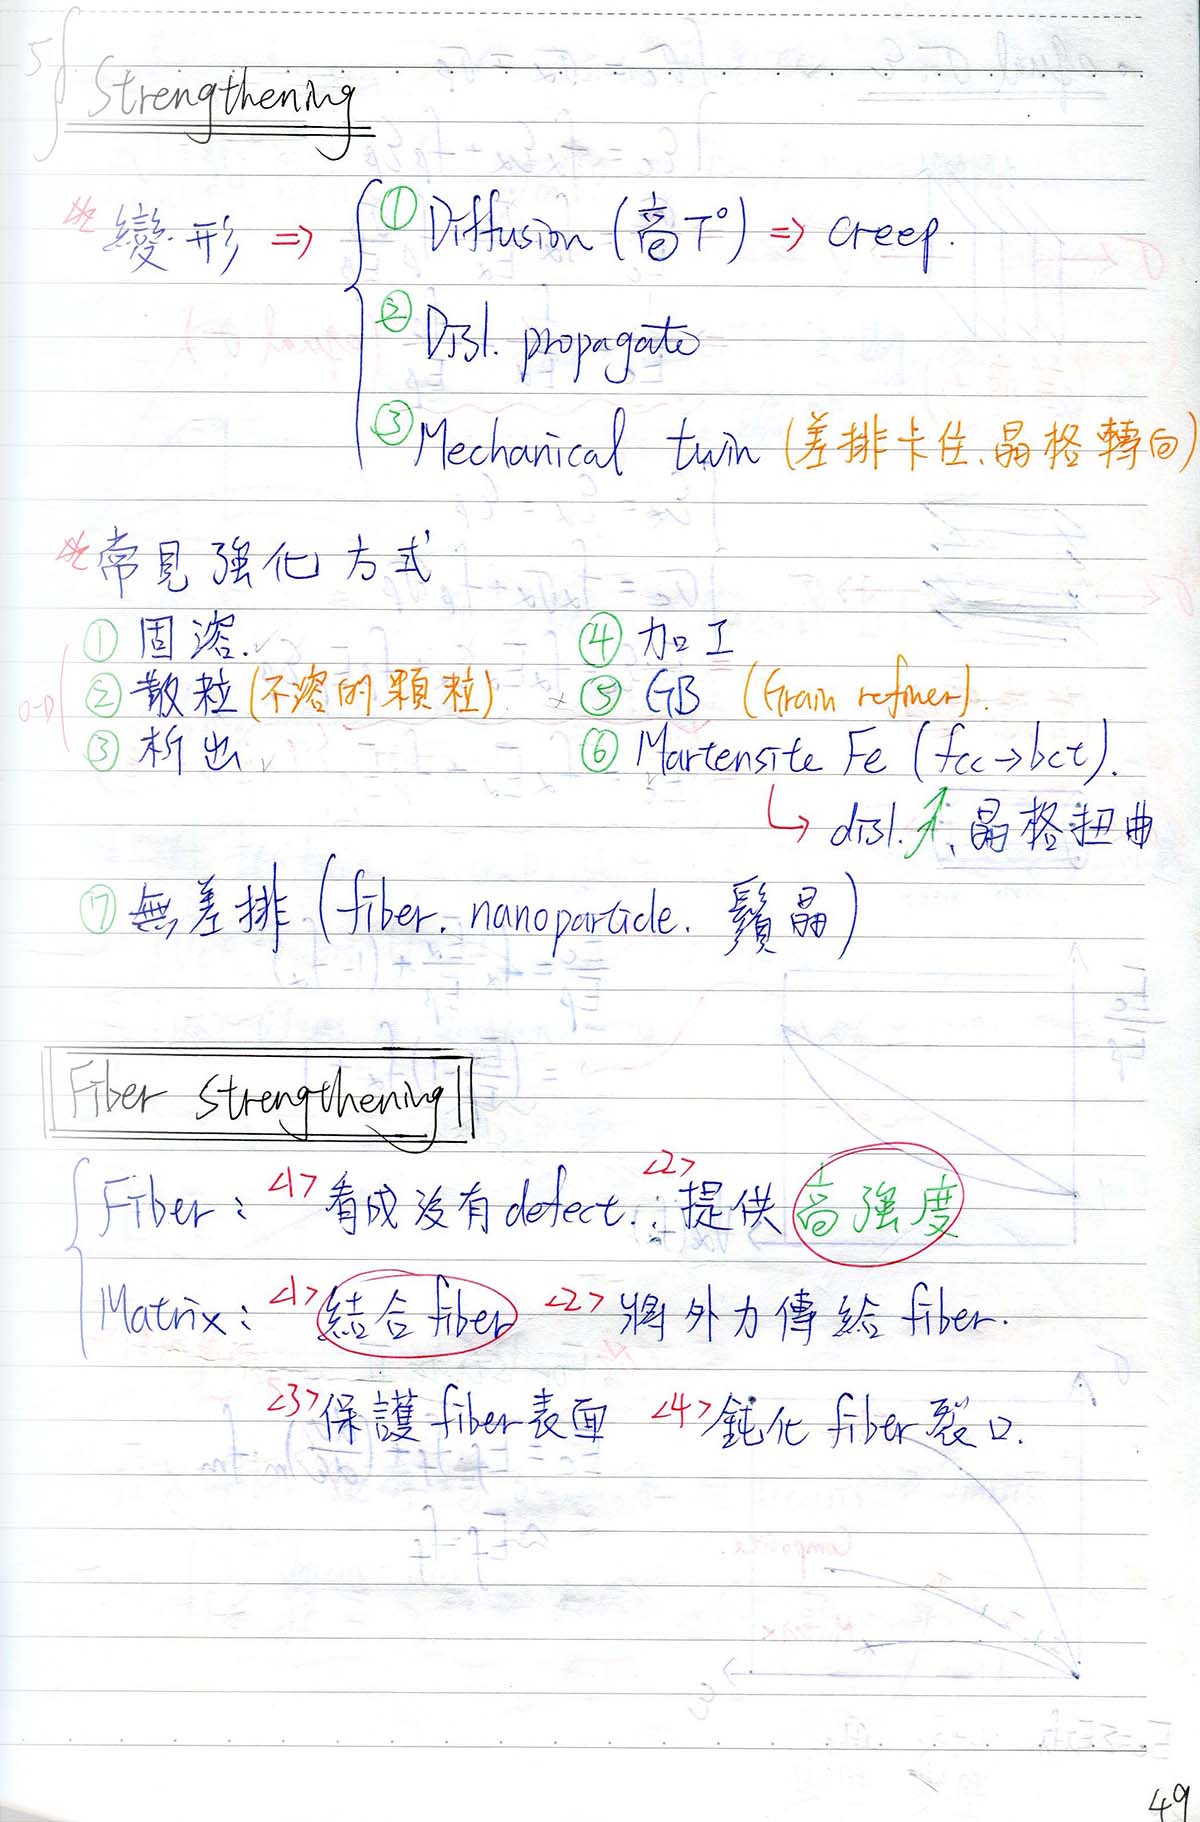 Strengthening
變形 ⇒ ① Diffusion (高T°) ⇒ creep.
② Disl. propagate
③ Mechanical twin (差排卡住、晶格轉向)
常見強化方式
① 固溶. ④ 加工
② 散粒 (不溶的顆粒) ⑤ GB (Grain refiner).
0-D
③ 析出 ⑥ Martensite Fe (fcc→bct).
↳ disl.↑、晶格扭曲
⑦ 無差排 (fiber. nanoparticle. 鬚晶)
Fiber strengthening
Fiber: <1> 看成沒有defect. <2> 提供 高強度
Matrix: <1> 結合 fiber <2> 將外力傳給 fiber.
<3> 保護 fiber 表面 <4> 鈍化 fiber 裂口.
49